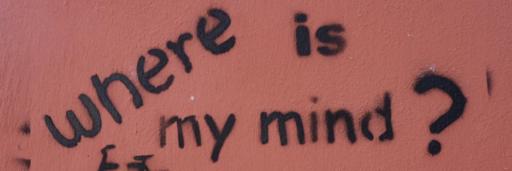 where is
my mind?